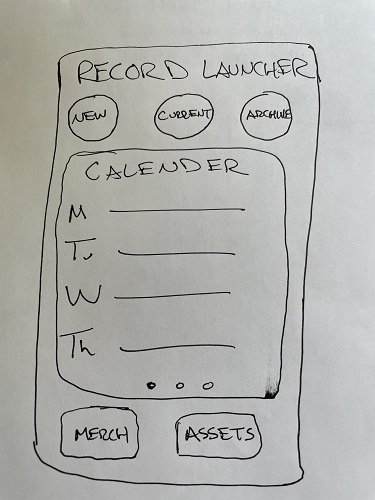 RECORD LAUNCHER
NEW CURRENT ARCHIVE
CALENDER
M
Tu
W
Th
MERCH ASSETS